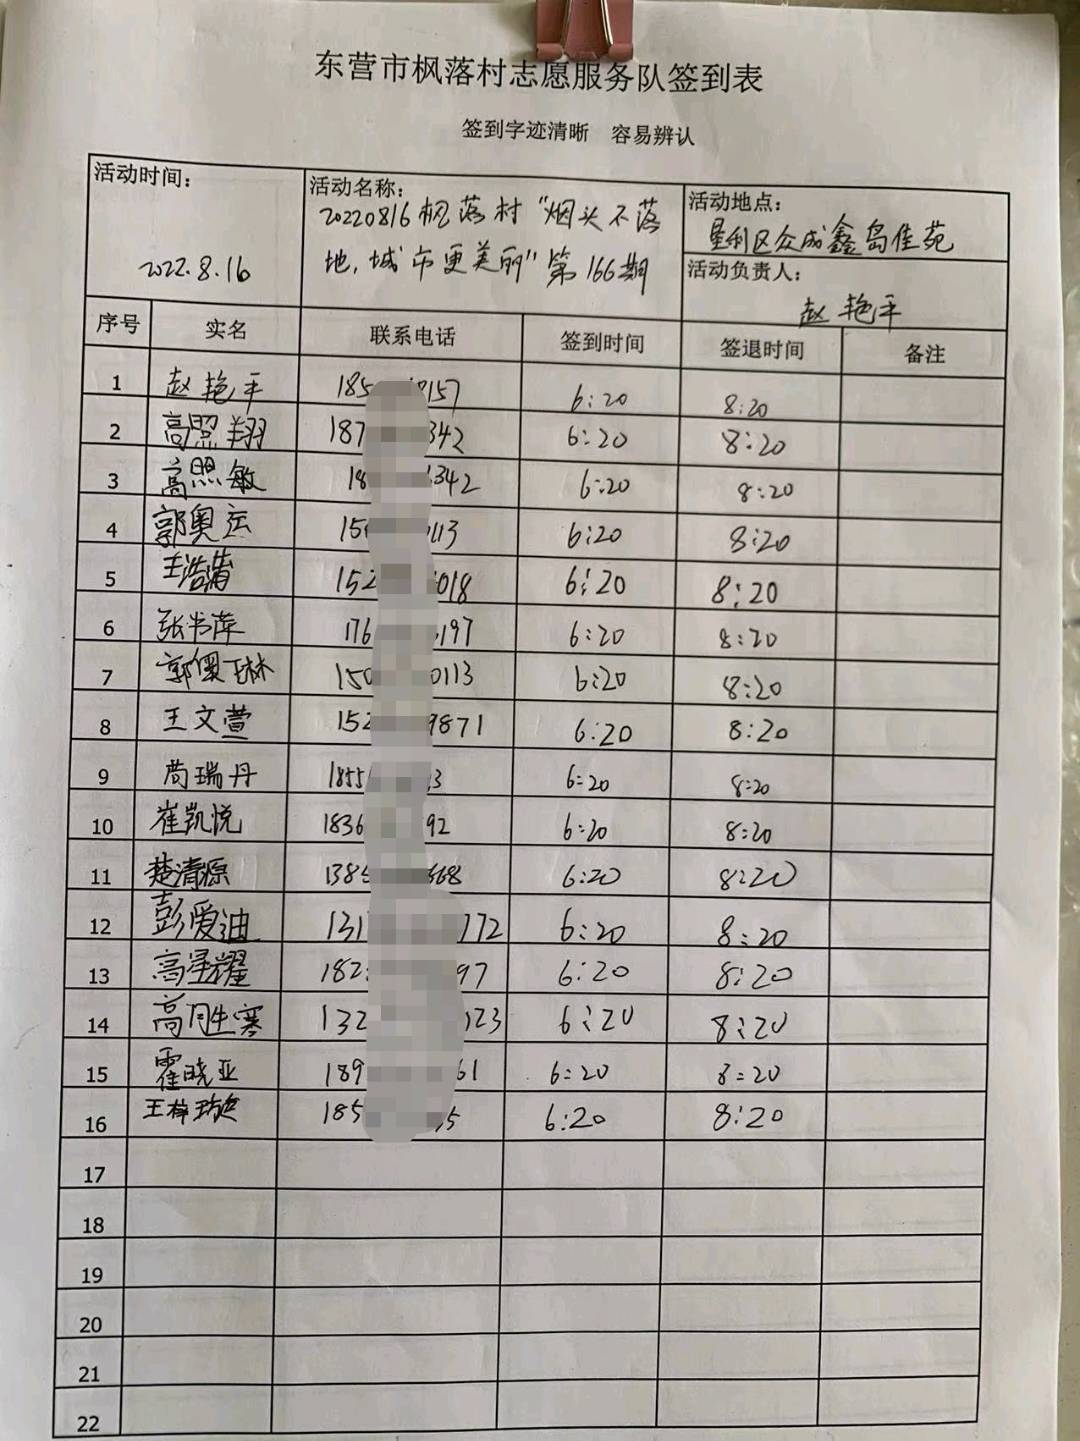 东营市枫落村志愿服务队签到表
签到字迹清晰 容易辨认
活动时间:
2022.8.16
活动名称:
20220816枫落村“烟头不落
地,城市更美丽”第166期
活动地点:
垦利区众成鑫岛佳苑
活动负责人:
赵艳平
序号 实名 联系电话 签到时间 签退时间 备注
1 赵艳平 185 157 6:20 8:20
2 高照翔 187 342 6:20 8:20
3 高照敏 18 342 6:20 8:20
4 郭奥运 15 113 6:20 8:20
5 王浩 152 018 6:20 8:20
6 张书萍 176 197 6:20 8:20
7 郭 林 150 0113 6:20 8:20
8 王文萱 152 9871 6:20 8:20
9 瑞丹 1855 3 6:20 8:20
10 崔凯悦 1836 92 6:20 8:20
11 楚清源 138 668 6:20 8:20
12 彭爱迪 131 772 6:20 8:20
13 高星耀 182 97 6:20 8:20
14 高 寒 132 023 6:20 8:20
15 霍晓亚 189 61 6:20 8:20
16 王梓 185 5 6:20 8:20
17
18
19
20
21
22